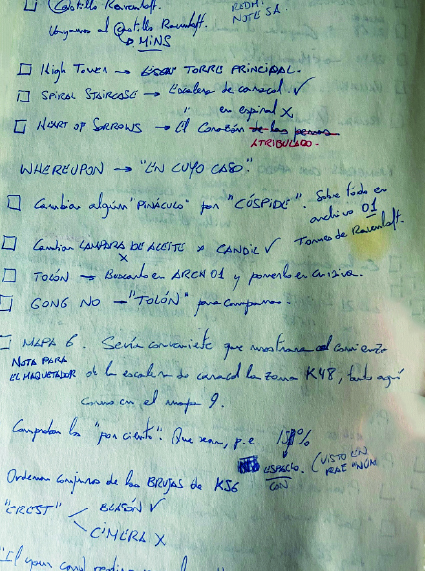 □ Castillo Ravenloft. REDM. NOTE SA.
Vengamos al Castillo Ravenloft.
→ MINS
□ High Tower → TORRE PRINCIPAL.
□ SPIRAL STAIRCASE → Escalera de caracol ✓
" en espiral X
□ HEART OF SORROWS → El Corazón de las penas
ATRIBULADO.
WHEREUPON → "EN CUYO CASO".
□ Cambiar algún "PINÁCULO" por "CÚSPIDE". Sobre todo en
archivo 01
Torres de Ravenloft.
□ Cambiar LAMPARA DE ACEITE x CANDIL ✓
X
□ TOLÓN → Buscarlo en ARCH 01 y ponerlo en cursiva.
□ GONG NO → "TOLÓN" para campanas.
□ MAPA 6. Sería conveniente que mostrara el comienzo
NOTA PARA
EL MAQUETADOR
de la escalera de caracol la zona K48, tanto aquí
como en el mapa 9.
Comprobar los "por ciento". Que sean, p.e 15 %
ESPACIO.
CON
(VISTO EN
Ordenar conjuros de las BRUJAS de K56
"CREST" BLASÓN ✓
CIMERA X
"If your card reading